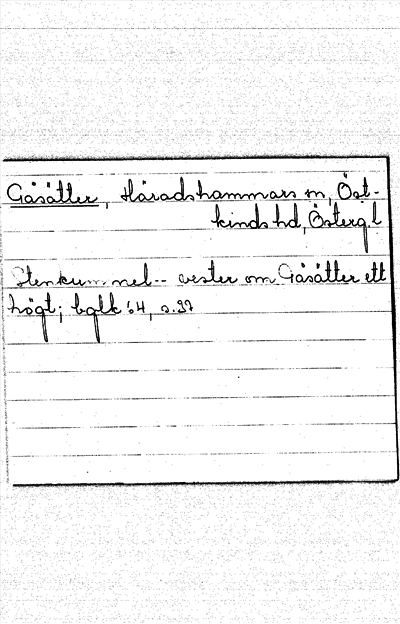 Gåsätter, Häradshammars sn, Öst-
kinds hd, Östergl
Stenkummel -- vester om Gåsätter ett
högt; bglk :4, s. 37